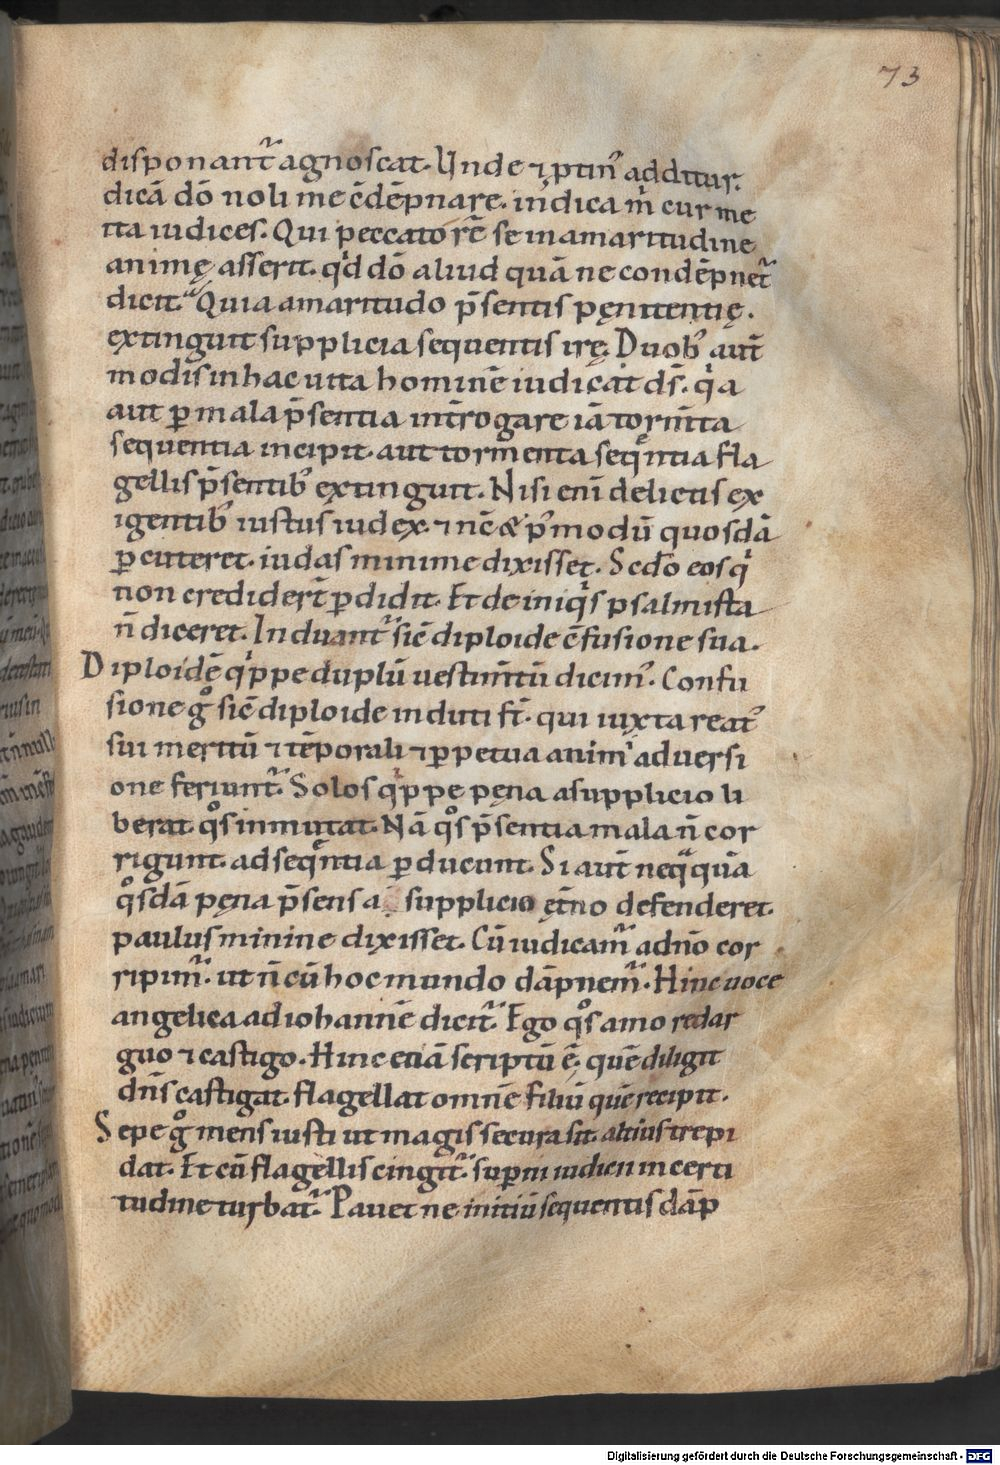 73
disponant᷑ agnoscat. Unde ⁊ ꝑtin᷒ additur.
dicā dō noli me c̄dēpnare. indica m̄ cur me
ita iudices. Qui peccatorē se in amaritudine
animę asserit. qd dō aliud quā ne condēpnet᷑
dicit. Quia amaritudo p̄sentis pęnitentię.
extinguit supplicia sequentis irę. Duob᷒ aut̄
modis in hac uita hominē iudicat ds̄. qꝛa
aut ꝑ mala p̄sentia int̄rogare iā torm̄ta
sequentia incipit. aut tormenta seq̄ntia fla
gellis p̄sentib᷒ extinguit. Nisi eni̅ delictis ex
igentib᷒ iustus iudex. ⁊ nc̄ & p᷒modū quosdā
ꝑcuteret. iudas minime dixisset. Scdo eos q
non credidert̄ ꝑdidit. Et de iniqs psalmista
n̄ diceret. Induant᷑ sic̄ diploide c̄fusione sua.
Diploidē qppe duplū uestim̄tū dicim᷒. Confu
sione gͦ sic̄ diploide induti st̄. qui iuxta reat᷒
sui meritū ⁊ tēporali ⁊ ꝑpetua anim aduersi
one feriunt᷑. Solos qppe pęna a supplicio li
berat. qͦs inmutat. Nā qͦs p̄sentia mala n̄ cor
rigunt. ad seq̄ntia ꝑducunt. Si aut̄ neqquā
qͦsdā pęna p̄sens a supplicio ęt̄no defenderet.
paulus minine dixisset. Cū iudicam᷑ a dn̄o cor
ripim᷑. ut n̄ cū hoc mundo dāpnem᷑. Hinc uoce
angelica ad iohannē dicit᷑. Ego qͦs amo redar
guo ⁊ castigo. Hinc etiā scriptū ē. quē diligit
dn̄s castigat. flagellat omnē filiū quē recipit.
Sepe gͦ mens iusti ut magis secura sit. altius trepi
dat. Et cū flagellis cingit᷑. suꝑni iudicii incerti
tudine turbat᷑. Pauet ne initiū sequentis dāp
Digitalisierung gefördert durch die Deutsche Forschungsgemeinschaft - DFG